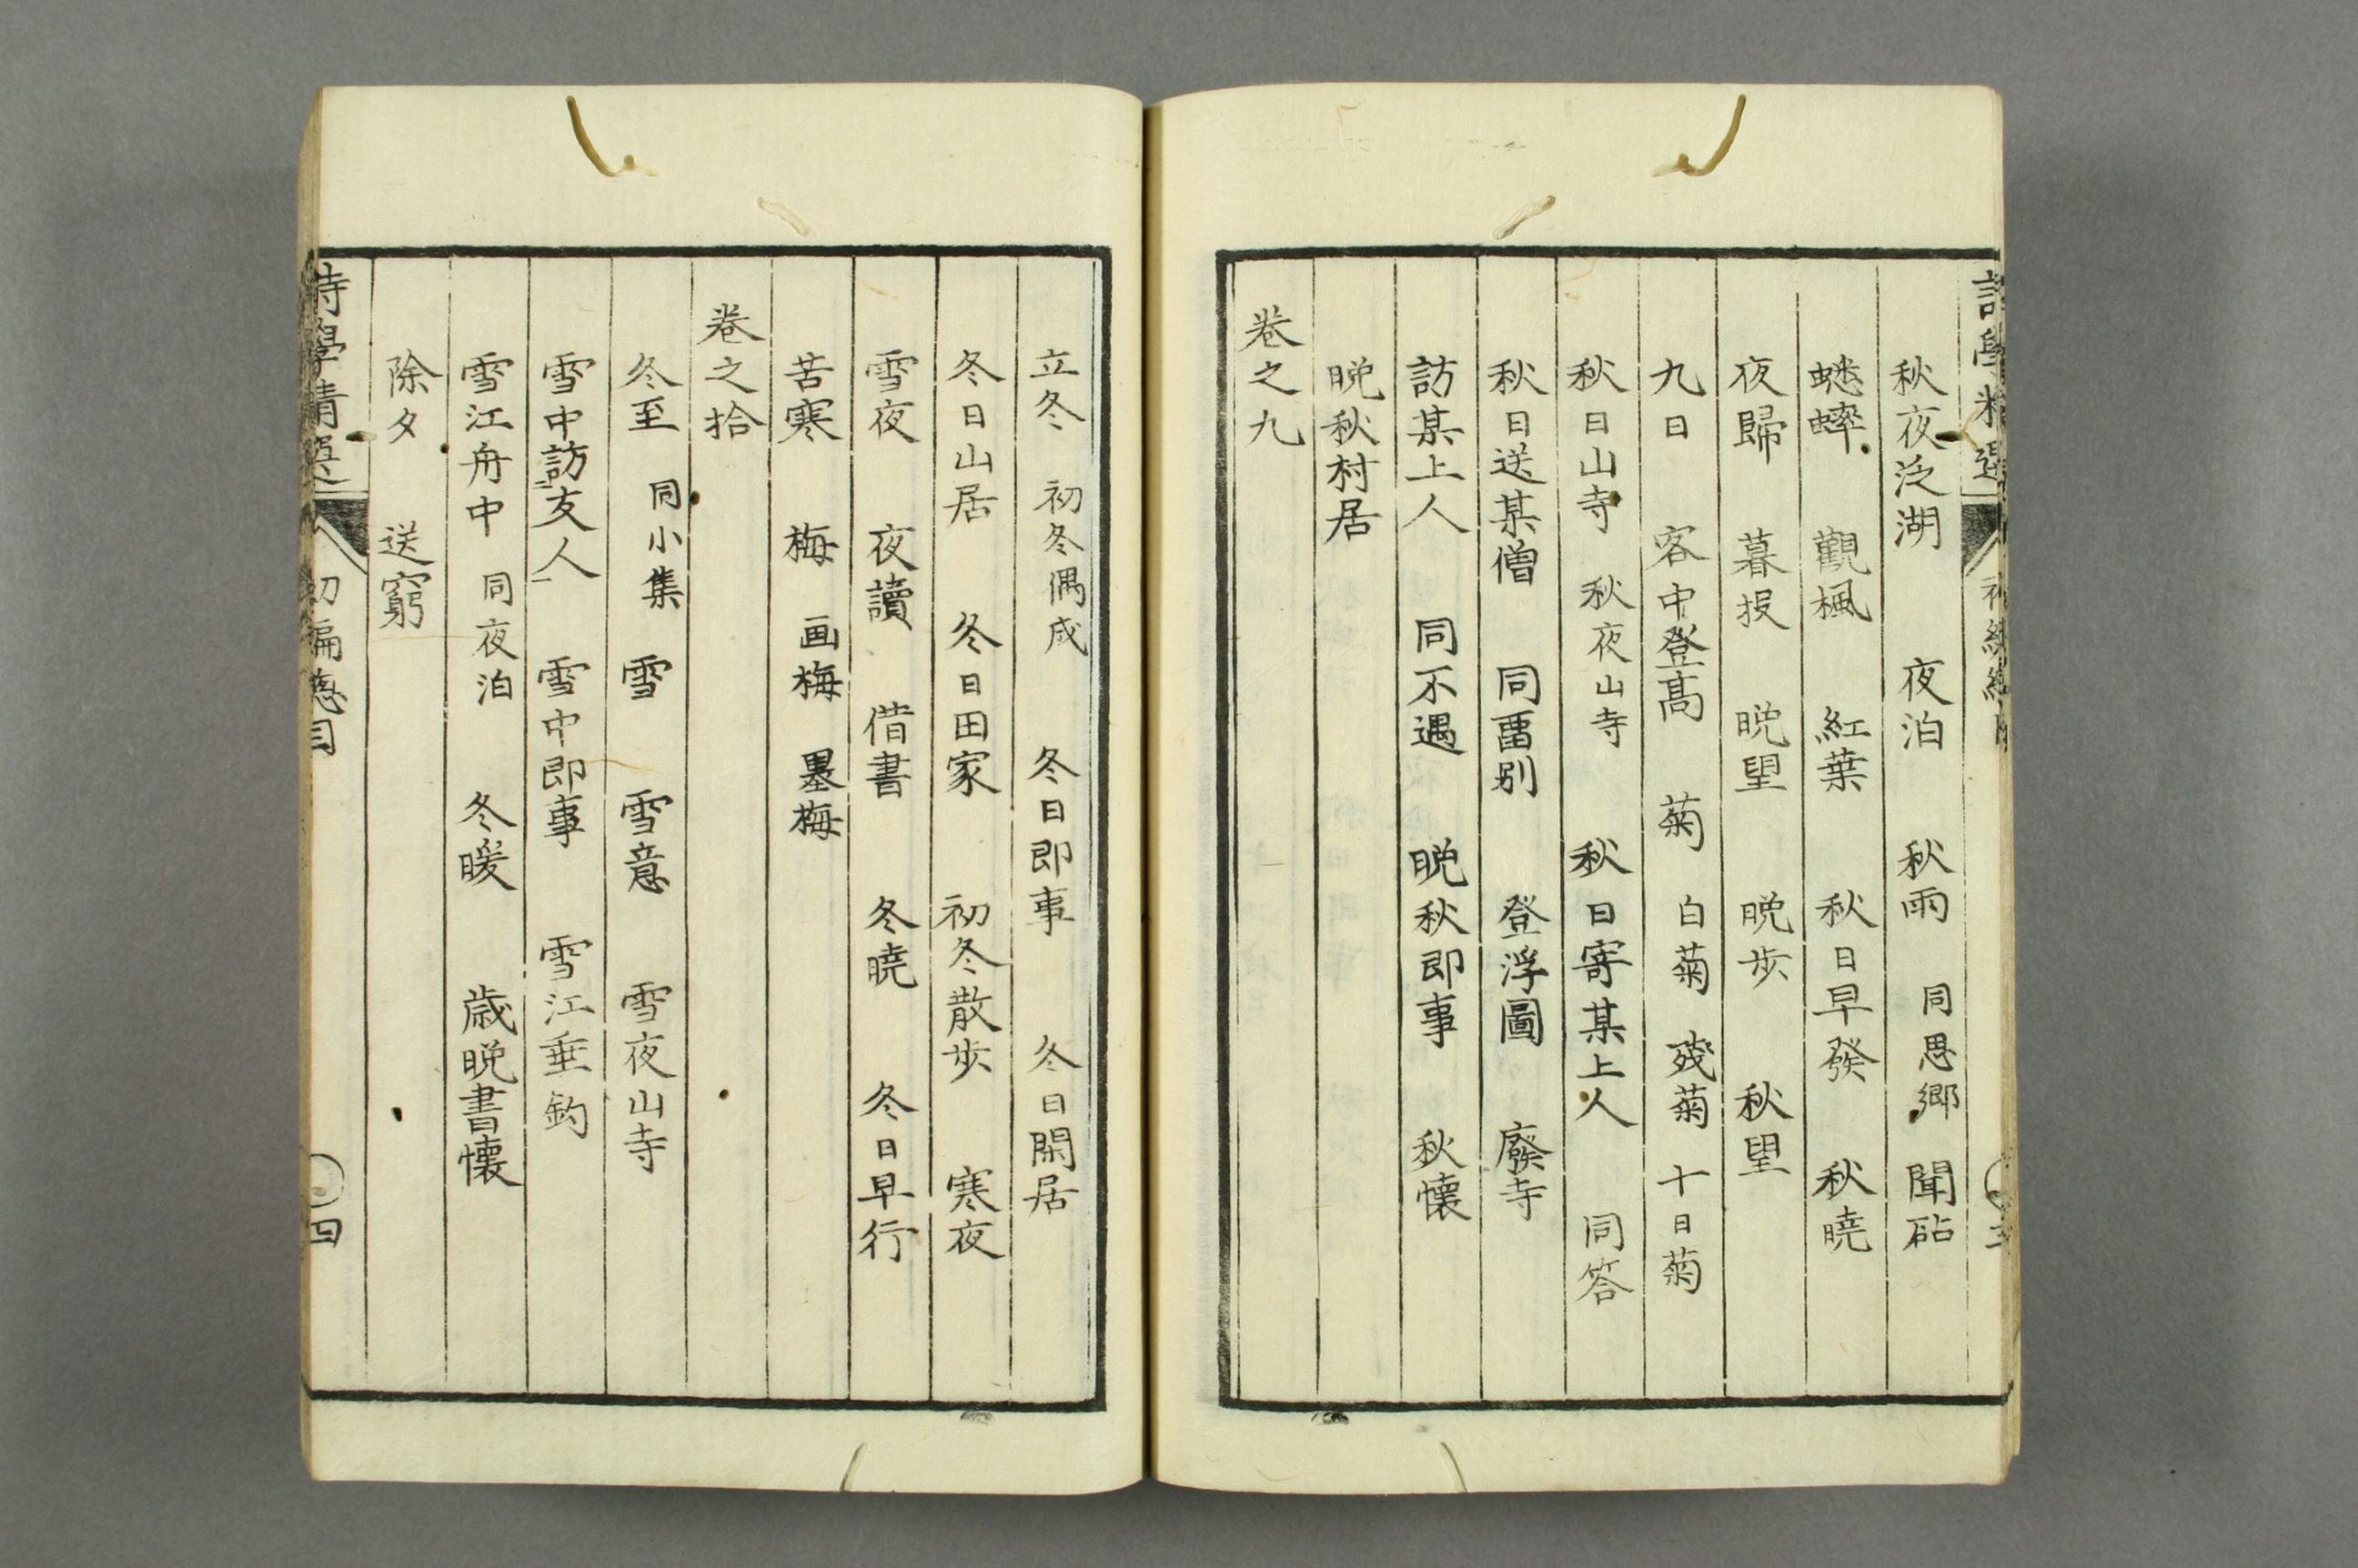 秋夜泛湖　夜泊　秋雨　同思郷　聞砧
蟋蟀　觀楓　紅葉　秋日早發　秋曉
夜歸　暮投　晩望　晩歩　秋望
九日　客中登髙　菊　白菊　残菊　十日菊
秋日山寺　秋夜山寺　秋日寄某上人　同答
秋日送某僧　同畱别　登浮圖　廢寺
訪某上人　同不遇　晩秋即事　秋懐
晩秋村居
巻之九
立冬　初冬偶成　冬日即事　冬日閑居
冬日山居　冬日田家　初冬散歩　寒夜
雪夜　夜讀　借書　冬曉　冬日早行
苦寒　梅　画梅　墨梅
巻之拾
冬至　同小集　雪　雪意　雪夜山寺
雪中訪友人　雪中即事　雪江垂釣
雪江舟中　同夜泊　冬暖　歳晩書懐
除夕　送窮
四